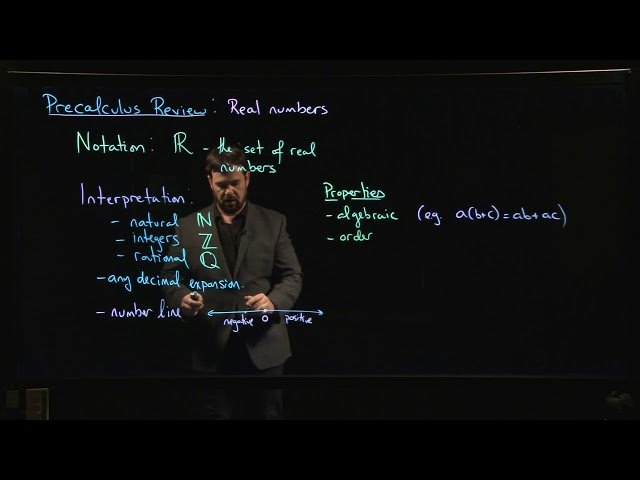 Precalculus Review: Real numbers
Notation: ℝ - the set of real
numbers
Interpretation:
- natural ℕ
- integers ℤ
- rational ℚ
- any decimal expansion.
- number line
negative 0 positive
Properties
- algebraic (eg. a(b+c)=ab+ac)
- order